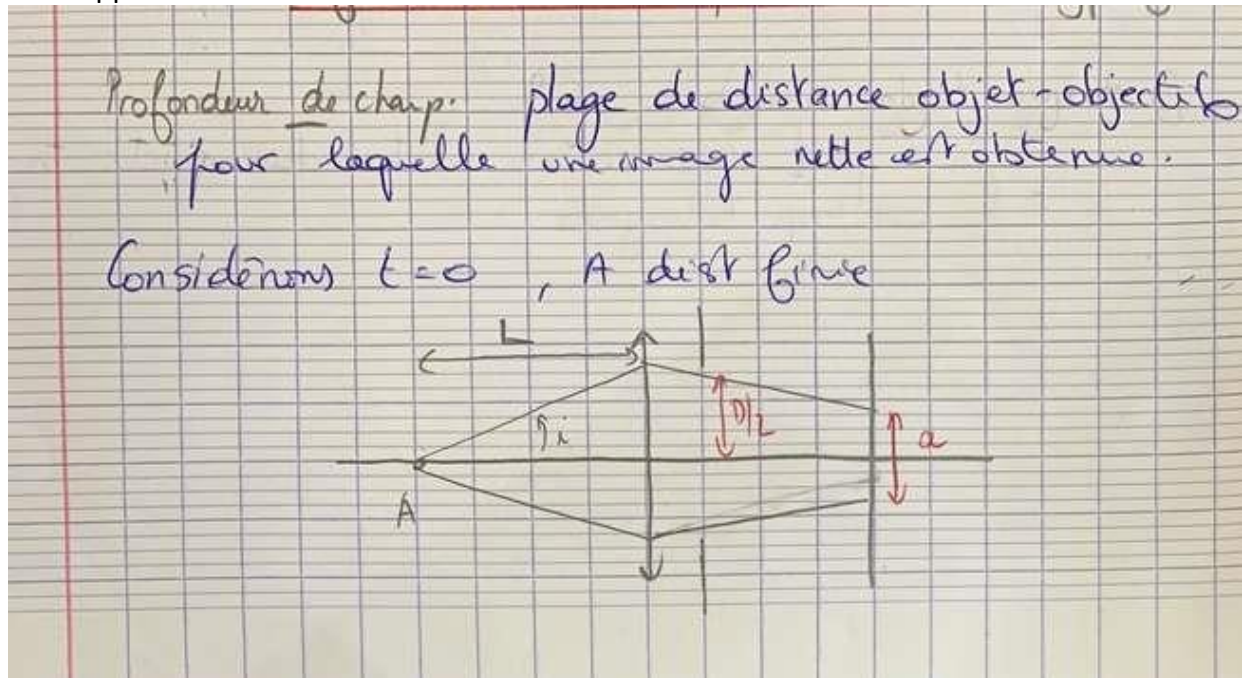 Profondeur de champ. plage de distance objet-objectif
pour laquelle une image nette est obtenue.
Considérons t=0, A dist finie
L
i
D/2
a
A